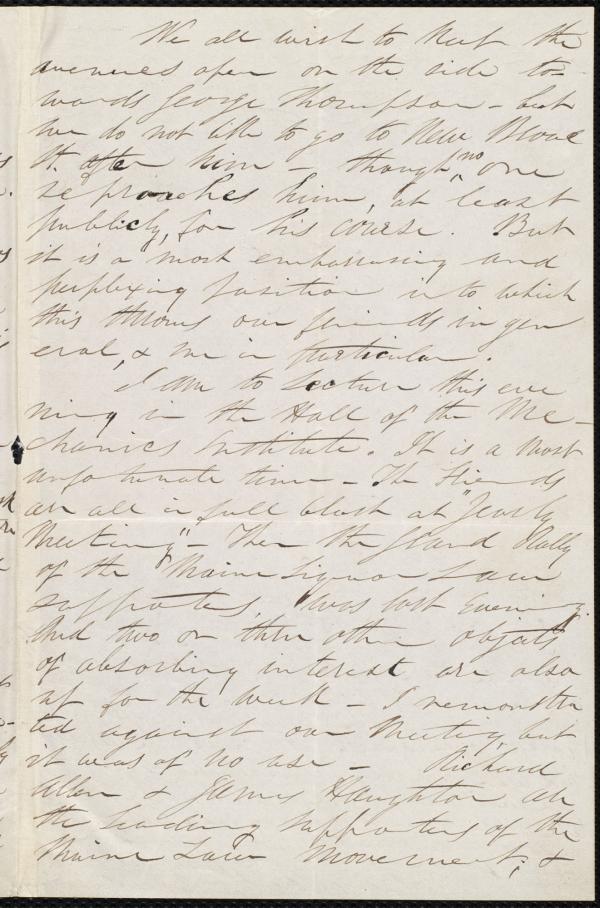 We all wish to keep the
avenues open on the side to-
wards George Thompson - but
we do not like to go to New Broad
St. after him - though no one
reproaches him, at least
publicly, for his course. But
it is a most embarrassing and
perplexing position into which
this throws our friends in gen
eral, & me in particular.
I am to lecture this eve
ning in the Hall of the Me-
chanics Institute. It is a most
unfortunate time - The Friends
are all in full blast at "Yearly
Meeting" - Then the Grand Rally
of the "Maine Liquor Law
supporters, was last evening.
And two or three other objects
of absorbing interest are also
up for the week - I remonstra
ted against our Meeting, but
it was of no use - Richard
Allen & James Haughton are
the leading supporters of the
Maine Law movement; &